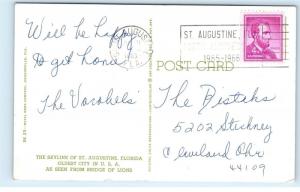 ST. AUGUSTINE,
1565-1965
POST CARD
Will be happy
to get home
The Varshels
The Distahs
5202 Stickney
Cleveland Ohio
44109
THE SKYLINE OF ST. AUGUSTINE, FLORIDA
OLDEST CITY IN U. S. A.
AS SEEN FROM BRIDGE OF LIONS